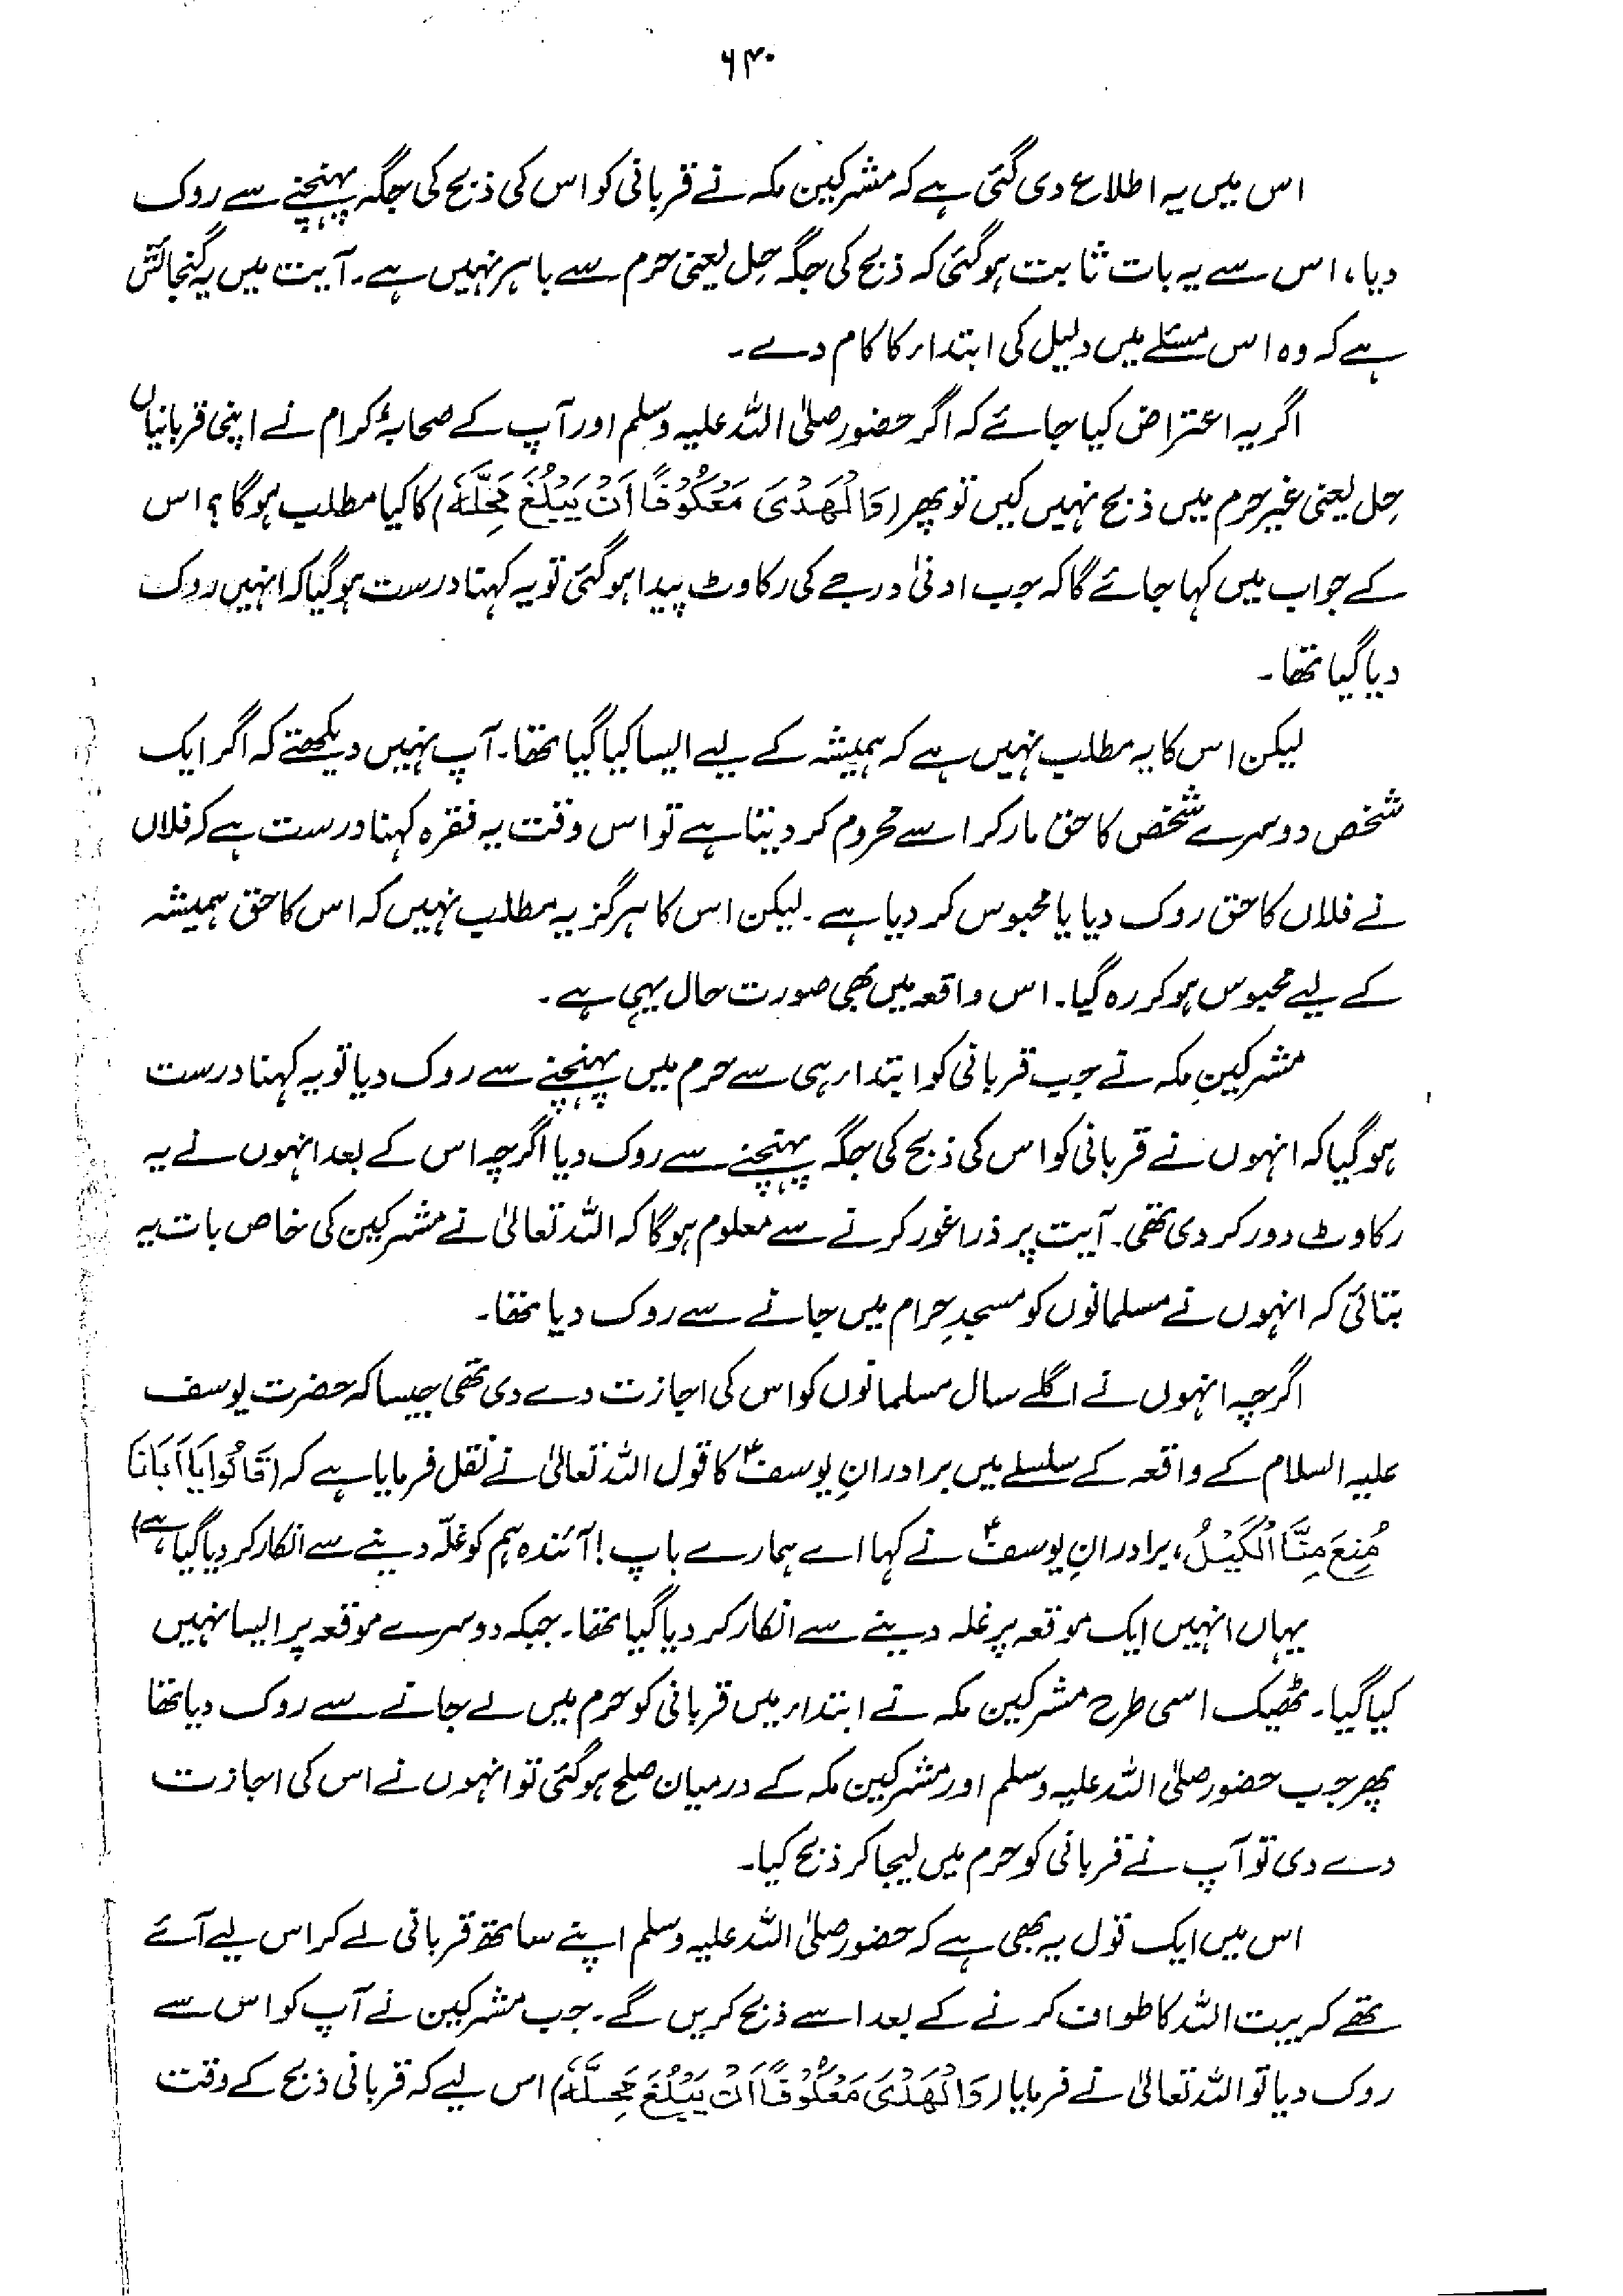 ۶۴۰
اس میں یہ اطلاع دی گئی ہے کہ مشرکین مکہ نے قربانی کو اس کی ذبح کی جگہ پہنچنے سے روک
دیا، اس سے یہ بات ثابت ہوگئی کہ ذبح کی جگہ حِل یعنی حرم سے باہر نہیں ہے۔ آیت میں یہ گنجائش
ہے کہ وہ اس مسئلے میں دلیل کی ابتداء کا کام دے۔
اگر یہ اعتراض کیا جائے کہ اگر حضور صلی اللہ علیہ وسلم اور آپ کے صحابۂ کرام نے اپنی قربانیاں
حِل یعنی غیر حرم میں ذبح نہیں کیں تو پھر (وَالْهَدْىَ مَعْكُوْفًا اَنْ يَبْلُغَ مَحِلَّهٗ) کا کیا مطلب ہوگا؟ اس
کے جواب میں کہا جائے گا کہ جب ادنیٰ درجے کی رکاوٹ پیدا ہوگئی تو یہ کہنا درست ہوگیا کہ انہیں روک
دیا گیا تھا۔
لیکن اس کا یہ مطلب نہیں ہے کہ ہمیشہ کے لیے ایسا کیا گیا تھا۔ آپ نہیں دیکھتے کہ اگر ایک
شخص دوسرے شخص کا حق مار کر اسے محروم کر دیتا ہے تو اس وقت یہ فقرہ کہنا درست ہے کہ فلاں
نے فلاں کا حق روک دیا یا محبوس کر دیا ہے۔ لیکن اس کا ہرگز یہ مطلب نہیں کہ اس کا حق ہمیشہ
کے لیے محبوس ہو کر رہ گیا۔ اس واقعہ میں بھی صورت حال یہی ہے۔
مشرکینِ مکہ نے جب قربانی کو ابتداء ہی سے حرم میں پہنچنے سے روک دیا تو یہ کہنا درست
ہوگیا کہ انہوں نے قربانی کو اس کی ذبح کی جگہ پہنچنے سے روک دیا اگرچہ اس کے بعد انہوں نے یہ
رکاوٹ دور کر دی تھی۔ آیت پر ذرا غور کرنے سے معلوم ہوگا کہ اللہ تعالیٰ نے مشرکین کی خاص بات یہ
بتائی کہ انہوں نے مسلمانوں کو مسجدِ حرام میں جانے سے روک دیا تھا۔
اگرچہ انہوں نے اگلے سال مسلمانوں کو اس کی اجازت دے دی تھی جیسا کہ حضرت یوسف
علیہ السلام کے واقعہ کے سلسلے میں برادرانِ یوسفؑ کا قول اللہ تعالیٰ نے نقل فرمایا ہے کہ (قَالُوْا يَا اَبَانَا
مُنِعَ مِنَّا الْكَيْلُ، برادرانِ یوسفؑ نے کہا اے ہمارے باپ! آئندہ ہم کو غلّہ دینے سے انکار کر دیا گیا ہے)
یہاں انہیں ایک موقعہ پر غلہ دینے سے انکار کر دیا گیا تھا۔ جبکہ دوسرے موقعہ پر ایسا نہیں
کیا گیا۔ ٹھیک اسی طرح مشرکین مکہ نے ابتداء میں قربانی کو حرم میں لے جانے سے روک دیا تھا
پھر جب حضور صلی اللہ علیہ وسلم اور مشرکین مکہ کے درمیان صلح ہوگئی تو انہوں نے اس کی اجازت
دے دی تو آپ نے قربانی کو حرم میں لیجا کر ذبح کیا۔
اس میں ایک قول یہ بھی ہے کہ حضور صلی اللہ علیہ وسلم اپنے ساتھ قربانی لے کر اس لیے آئے
تھے کہ بیت اللہ کا طواف کرنے کے بعد اسے ذبح کریں گے۔ جب مشرکین نے آپ کو اس سے
روک دیا تو اللہ تعالیٰ نے فرمایا (وَالْهَدْىَ مَعْكُوْفًا اَنْ يَبْلُغَ مَحِلَّهٗ) اس لیے کہ قربانی ذبح کے وقت